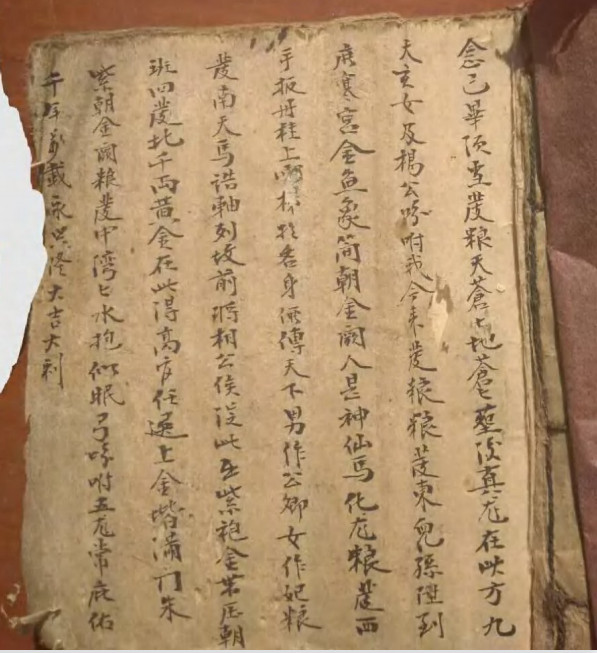 念已畢須發粮天蒼匕地蒼匕塟後真龙在此方九
天玄女及楊公吩咐我今來發粮粮發東兒孫陞到
廣寒宮金魚象简朝金闕人是神仙馬化龙粮發西
手扳丹桂上梯名身傳天下男作公卿女作妃粮
發南天馬誥軸列坟前將相公侯從此出紫袍金帶压朝
班四發北千両黃金在此得高官任選上金堦滿门朱
紫朝金闕粮發中湾匕水抱似眠弓吩咐五龙常庇佑
千年萬載永興隆大吉大利